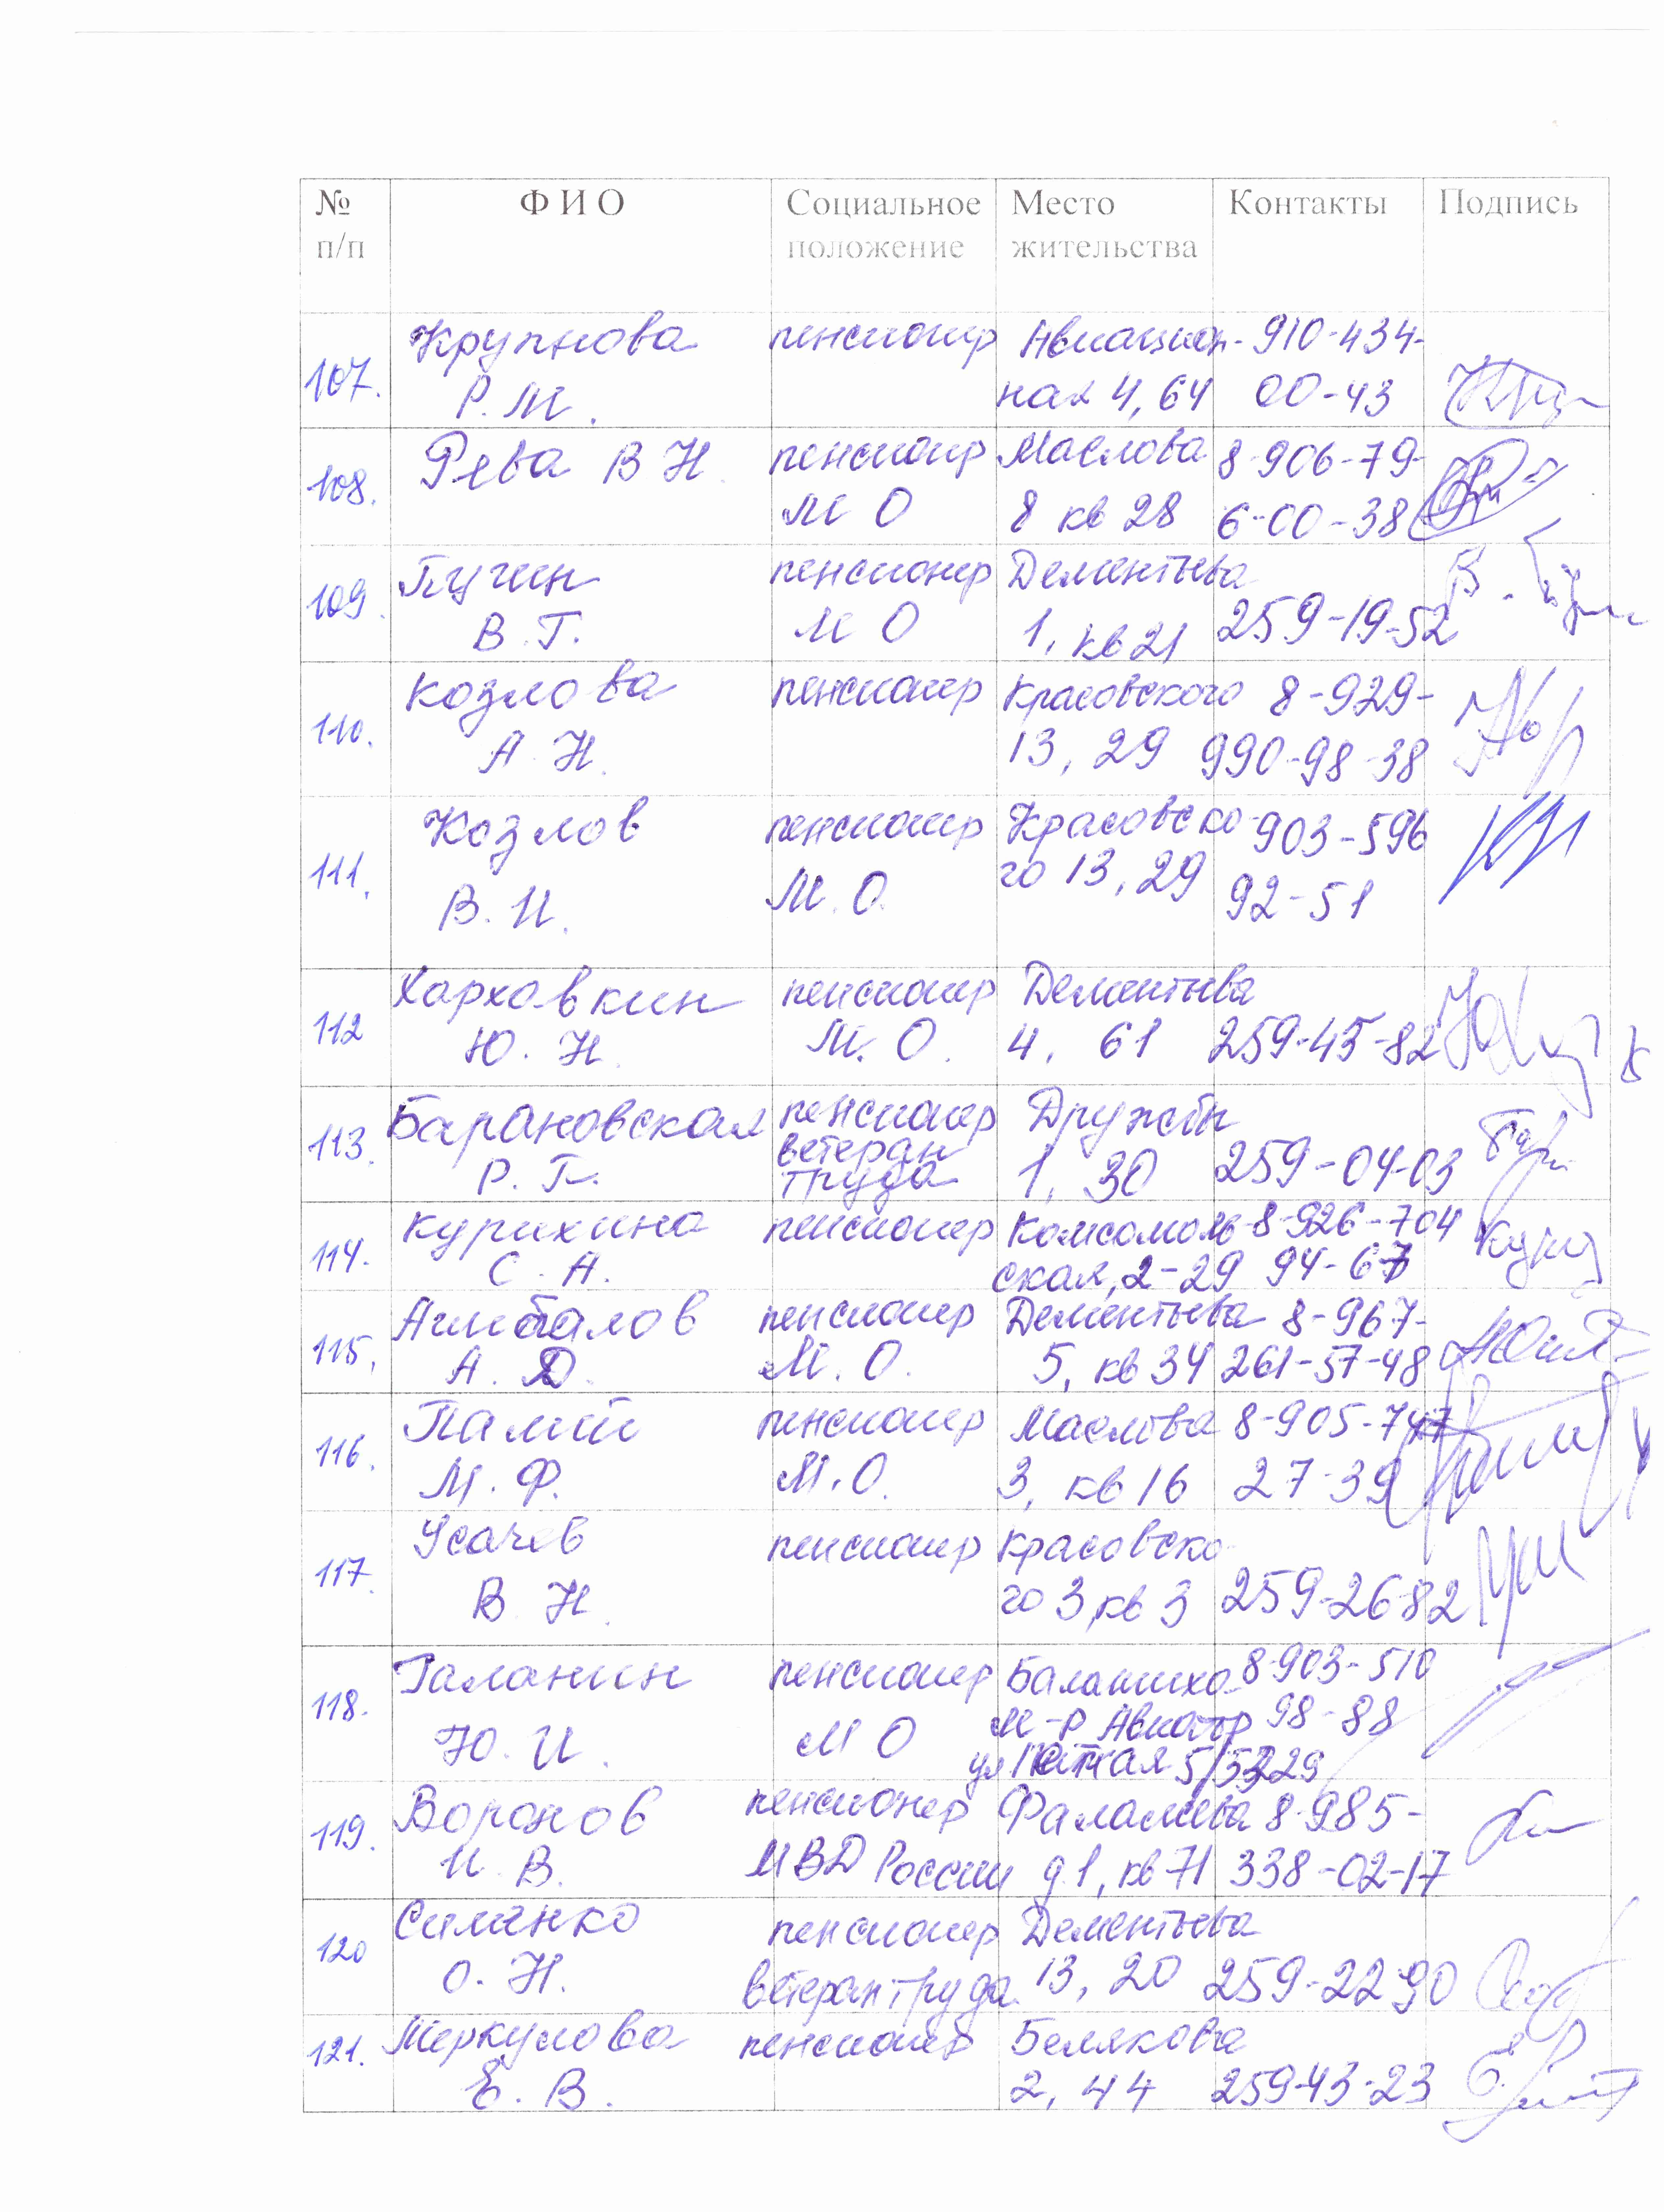 № Ф И О Социальное Место Контакты Подпись
п/п положение жительства
107. Крупнова пенсионер Авиацион- 910-434-
Р. М. ная 4, 64 00-43
108. Рева В Н пенсионер Маслова 8-906-79-
М О 8 кв 28 6-00-38
109. Пугин пенсионер Дементьева
В. Г. М О 1, кв 21 259-19-52
110. Козлова пенсионер Красовского 8-929-
А. Н. 13, 29 990-98-38
111. Козлов пенсионер Красовско- 903-596
В. И. М. О. го 13, 29 92-51
112 Харховкин пенсионер Дементьева
Ю. Н. М. О. 4, 61 259-45-82
113. Барановская пенсионер Дружбы
ветеран
Р. Г. труда 1, 30 259-04-03
114. Курихина пенсионер Комсомоль- 8-926-704
С. А. ская, 2-29 94-67
115. пенсионер Дементьева 8-967-
А. Д. М. О. 5, кв 34 261-57-48
116. Палий пенсионер Маслова 8-905-747
М. Ф. М. О. 3, кв 16 27-39
117. Усачев пенсионер Красовско
В Н го 3, кв 3 259-26-82
118. Галанин пенсионер Балашиха 8-903-510
Ю. И. М О м-р Авиатор 98-88
ул
119. Воронов пенсионер Фаламеева 8-985-
И. В. МВД России д 1, кв 71 338-02-17
120 Сименко пенсионер Дементьева
О. Н. ветеран труда 13, 20 259-22-90
121. Меркулова пенсионер Белякова
Е. В. 2, 44 259-43-23